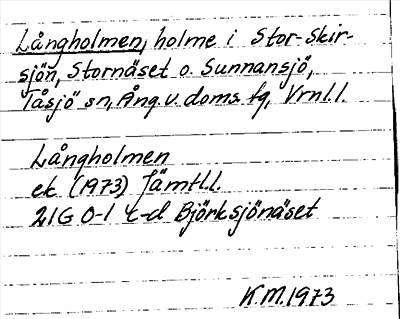 Långholmen, holme i Stor-Skir-
sjön, Stornäset o. Sunnansjö,
Tåsjö sn, Ång. v. doms. fg, Vrnl.l.
Långholmen
ek (1973) Jämtl.l.
21G 0-1 c-d Björksjönäset
K.M. 1973